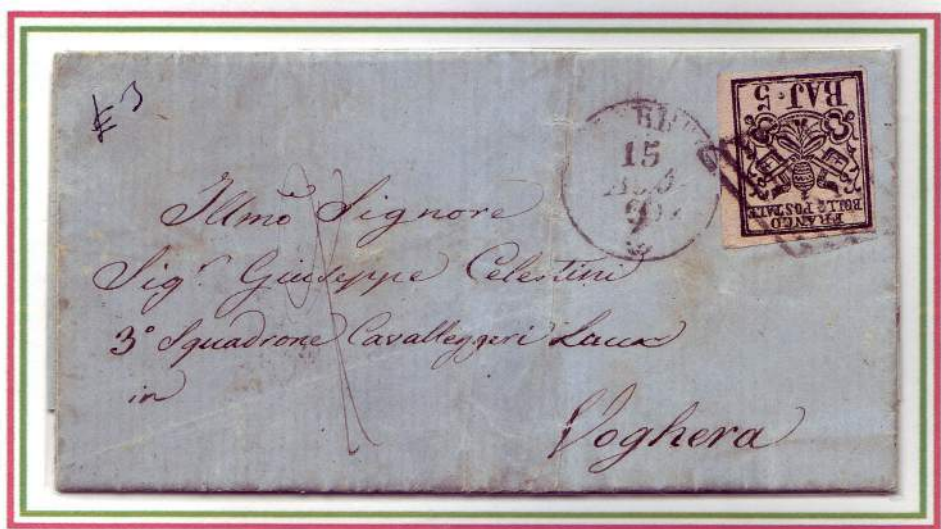 BAJ. 5
15
FRANCO
BOLLO POSTALE
Illmo Signore
Sigr. Giuseppe Celestini
3° Squadrone Cavalleggeri Lucca
in
Voghera